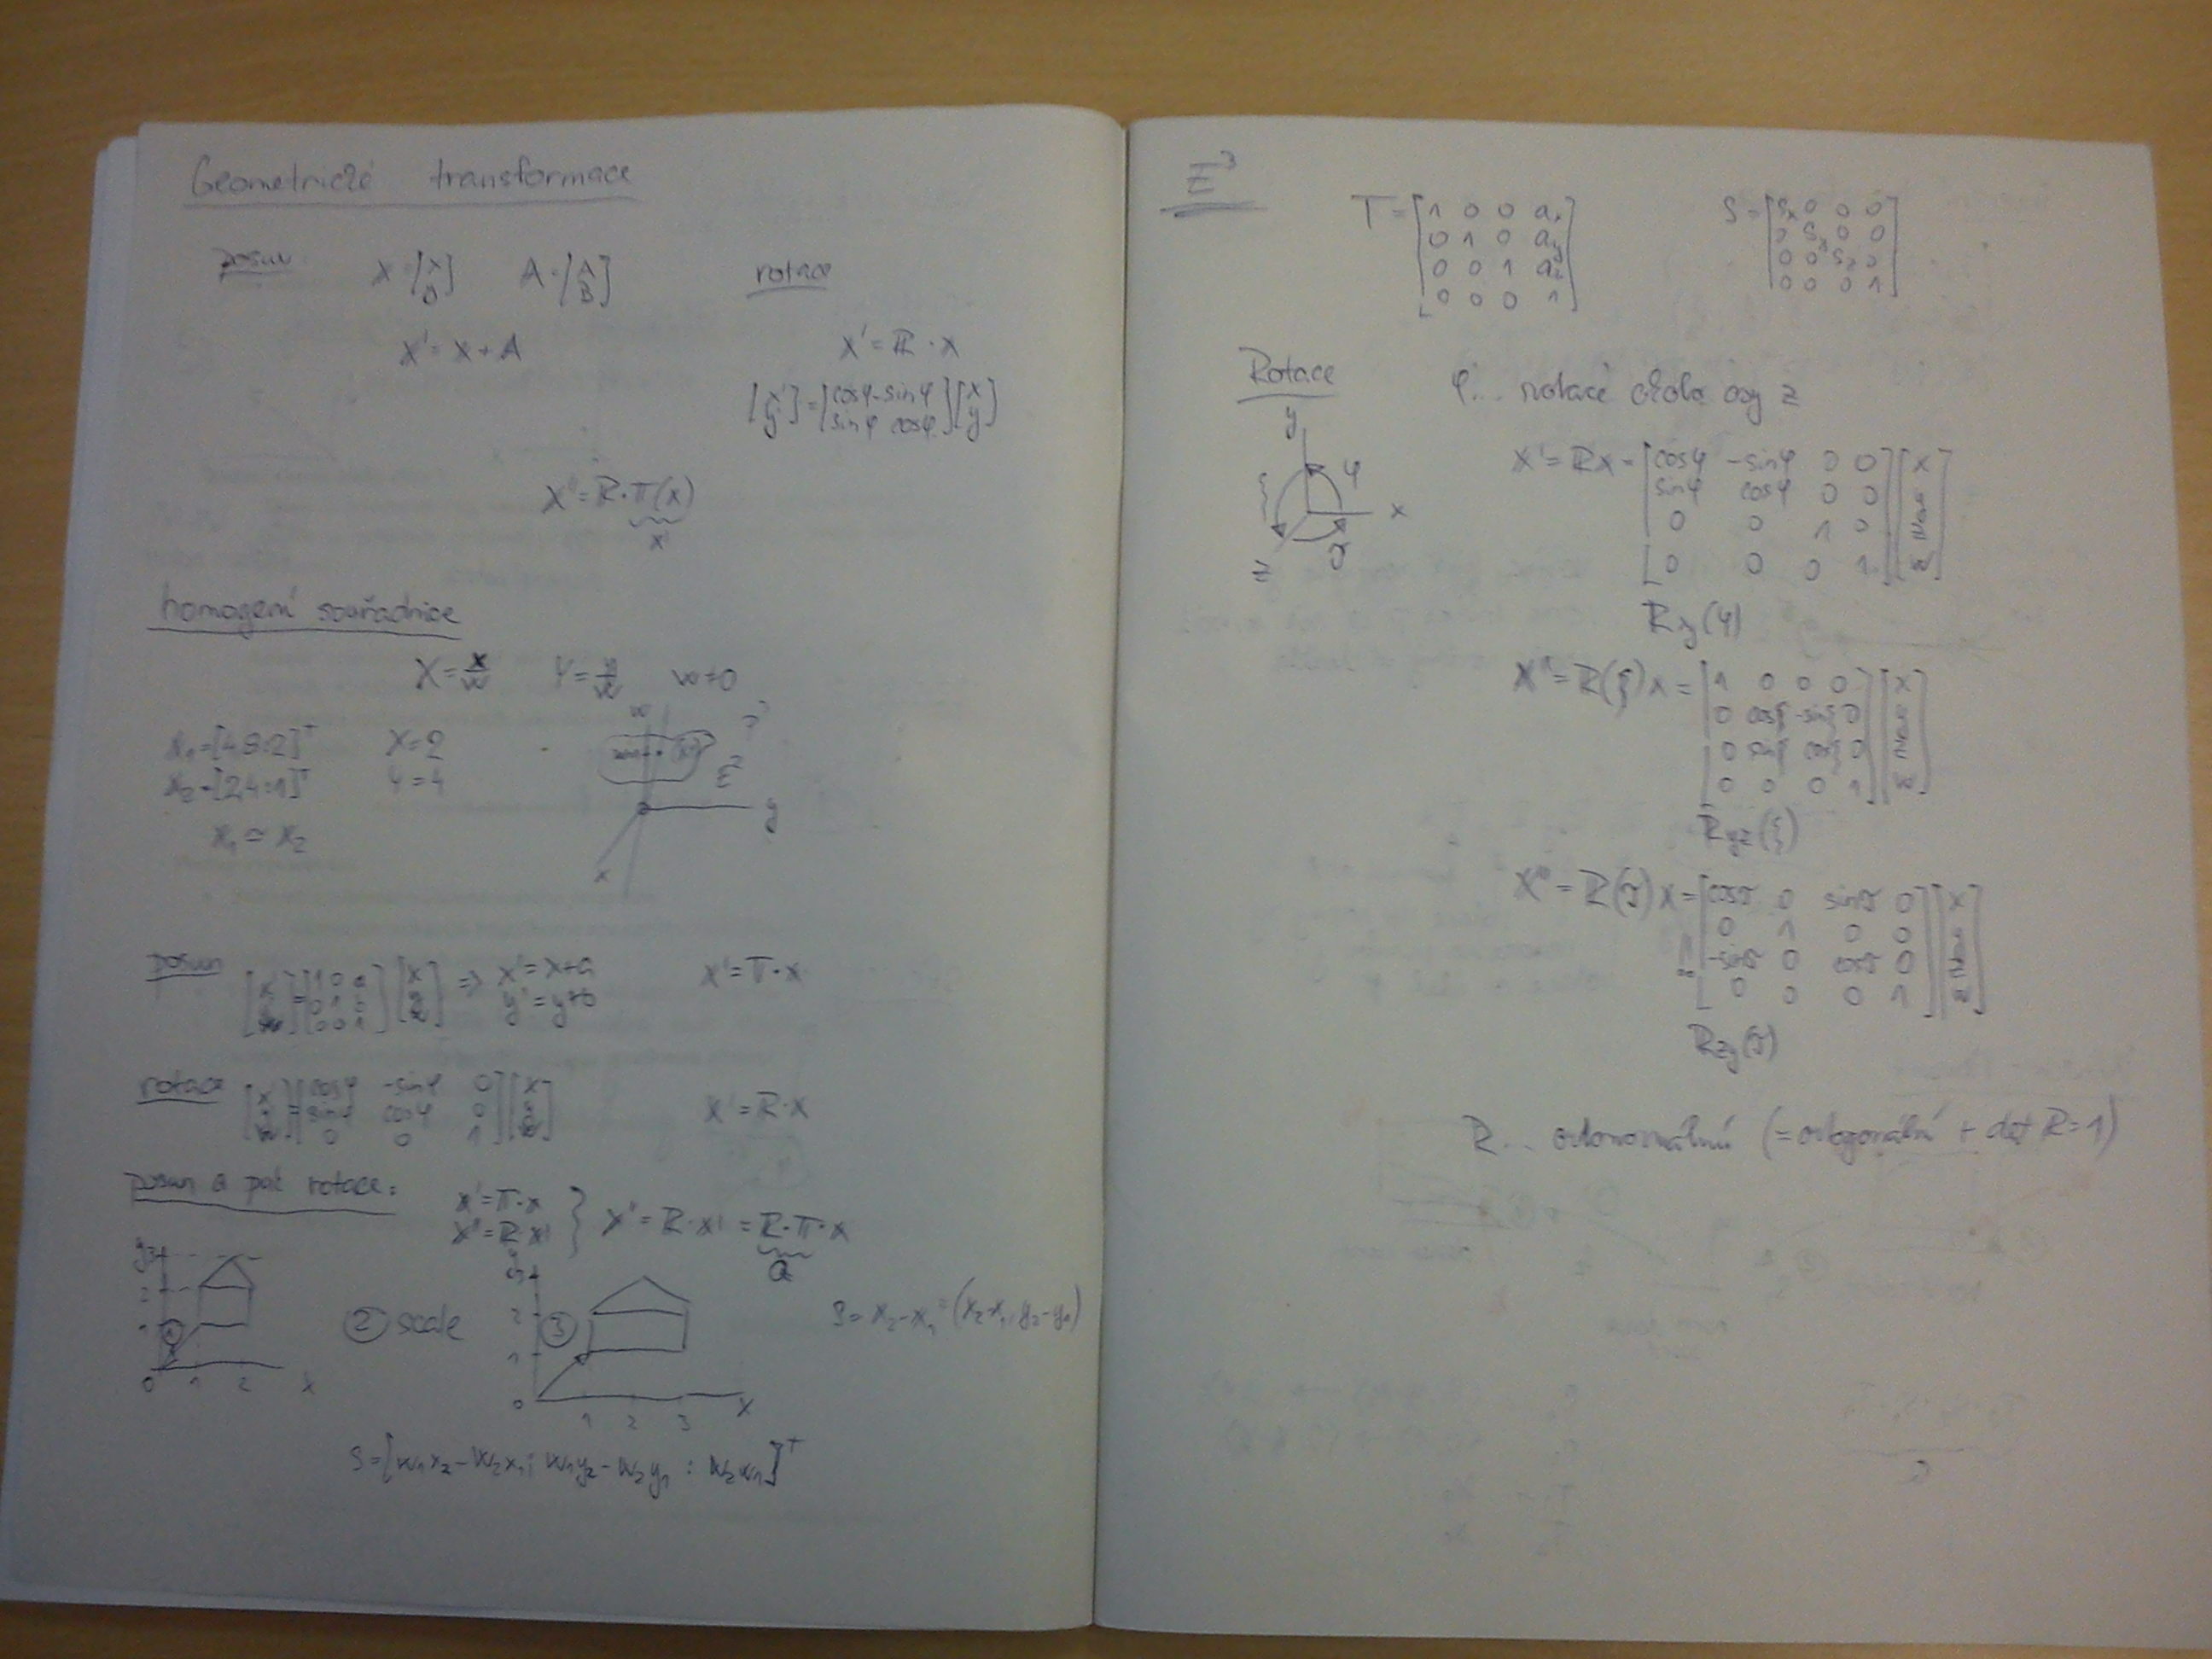 Geometrické transformace
posun X = [X
0] A = [A
B] rotace
X' = X + A
X' = R · X
[x'
y'] = [cosφ -sinφ
sinφ cosφ] [x
y]
X'' = R · T(x)
x'
homogení souřadnice
X = x/w Y = y/w w ≠ 0
x₁ = [4,8:2]ᵀ X = 2
x₂ = [2,4:1]ᵀ Y = 4
x₁ ≃ x₂
w
E²
y
x
posun [x'
y'
w'] = [1 0 a
0 1 b
0 0 1] [x
y
w] => x' = x+a
y' = y+b
X' = T · x
rotace [x'
y'
w'] = [cosφ -sinφ 0
sinφ cosφ 0
0 0 1] [x
y
w] X' = R · x
posun a pak rotace:
x' = T · x
x'' = R · x' } x'' = R · x' = R · T · x
Q
y 3
2
1
①
0 1 2 x
② scale
y
2
③
1
0 1 2 3 x
S = x₂ - x₁ = (x₂-x₁, y₂-y₁)
S = [w₁x₂ - w₂x₁; w₁y₂ - w₂y₁ : w₂w₁]ᵀ
E³
T = [1 0 0 aₓ
0 1 0 a_y
0 0 1 a_z
0 0 0 1]
S = [Sₓ 0 0 0
0 S_y 0 0
0 0 S_z 0
0 0 0 1]
Rotace
φ... rotace okolo osy z
y
φ
ξ
x
z
ϑ
X' = Rx = [cosφ -sinφ 0 0
sinφ cosφ 0 0
0 0 1 0
0 0 0 1] [x
y
z
w]
Rxy(φ)
X'' = R(ξ)x = [1 0 0 0
0 cosξ -sinξ 0
0 sinξ cosξ 0
0 0 0 1] [x
y
z
w]
Ryz(ξ)
X''' = R(ϑ)x = [cosϑ 0 sinϑ 0
0 1 0 0
-sinϑ 0 cosϑ 0
0 0 0 1] [x
y
z
w]
!!
Rzy(ϑ)
R... ortonormální (= ortogonální + det R = 1)